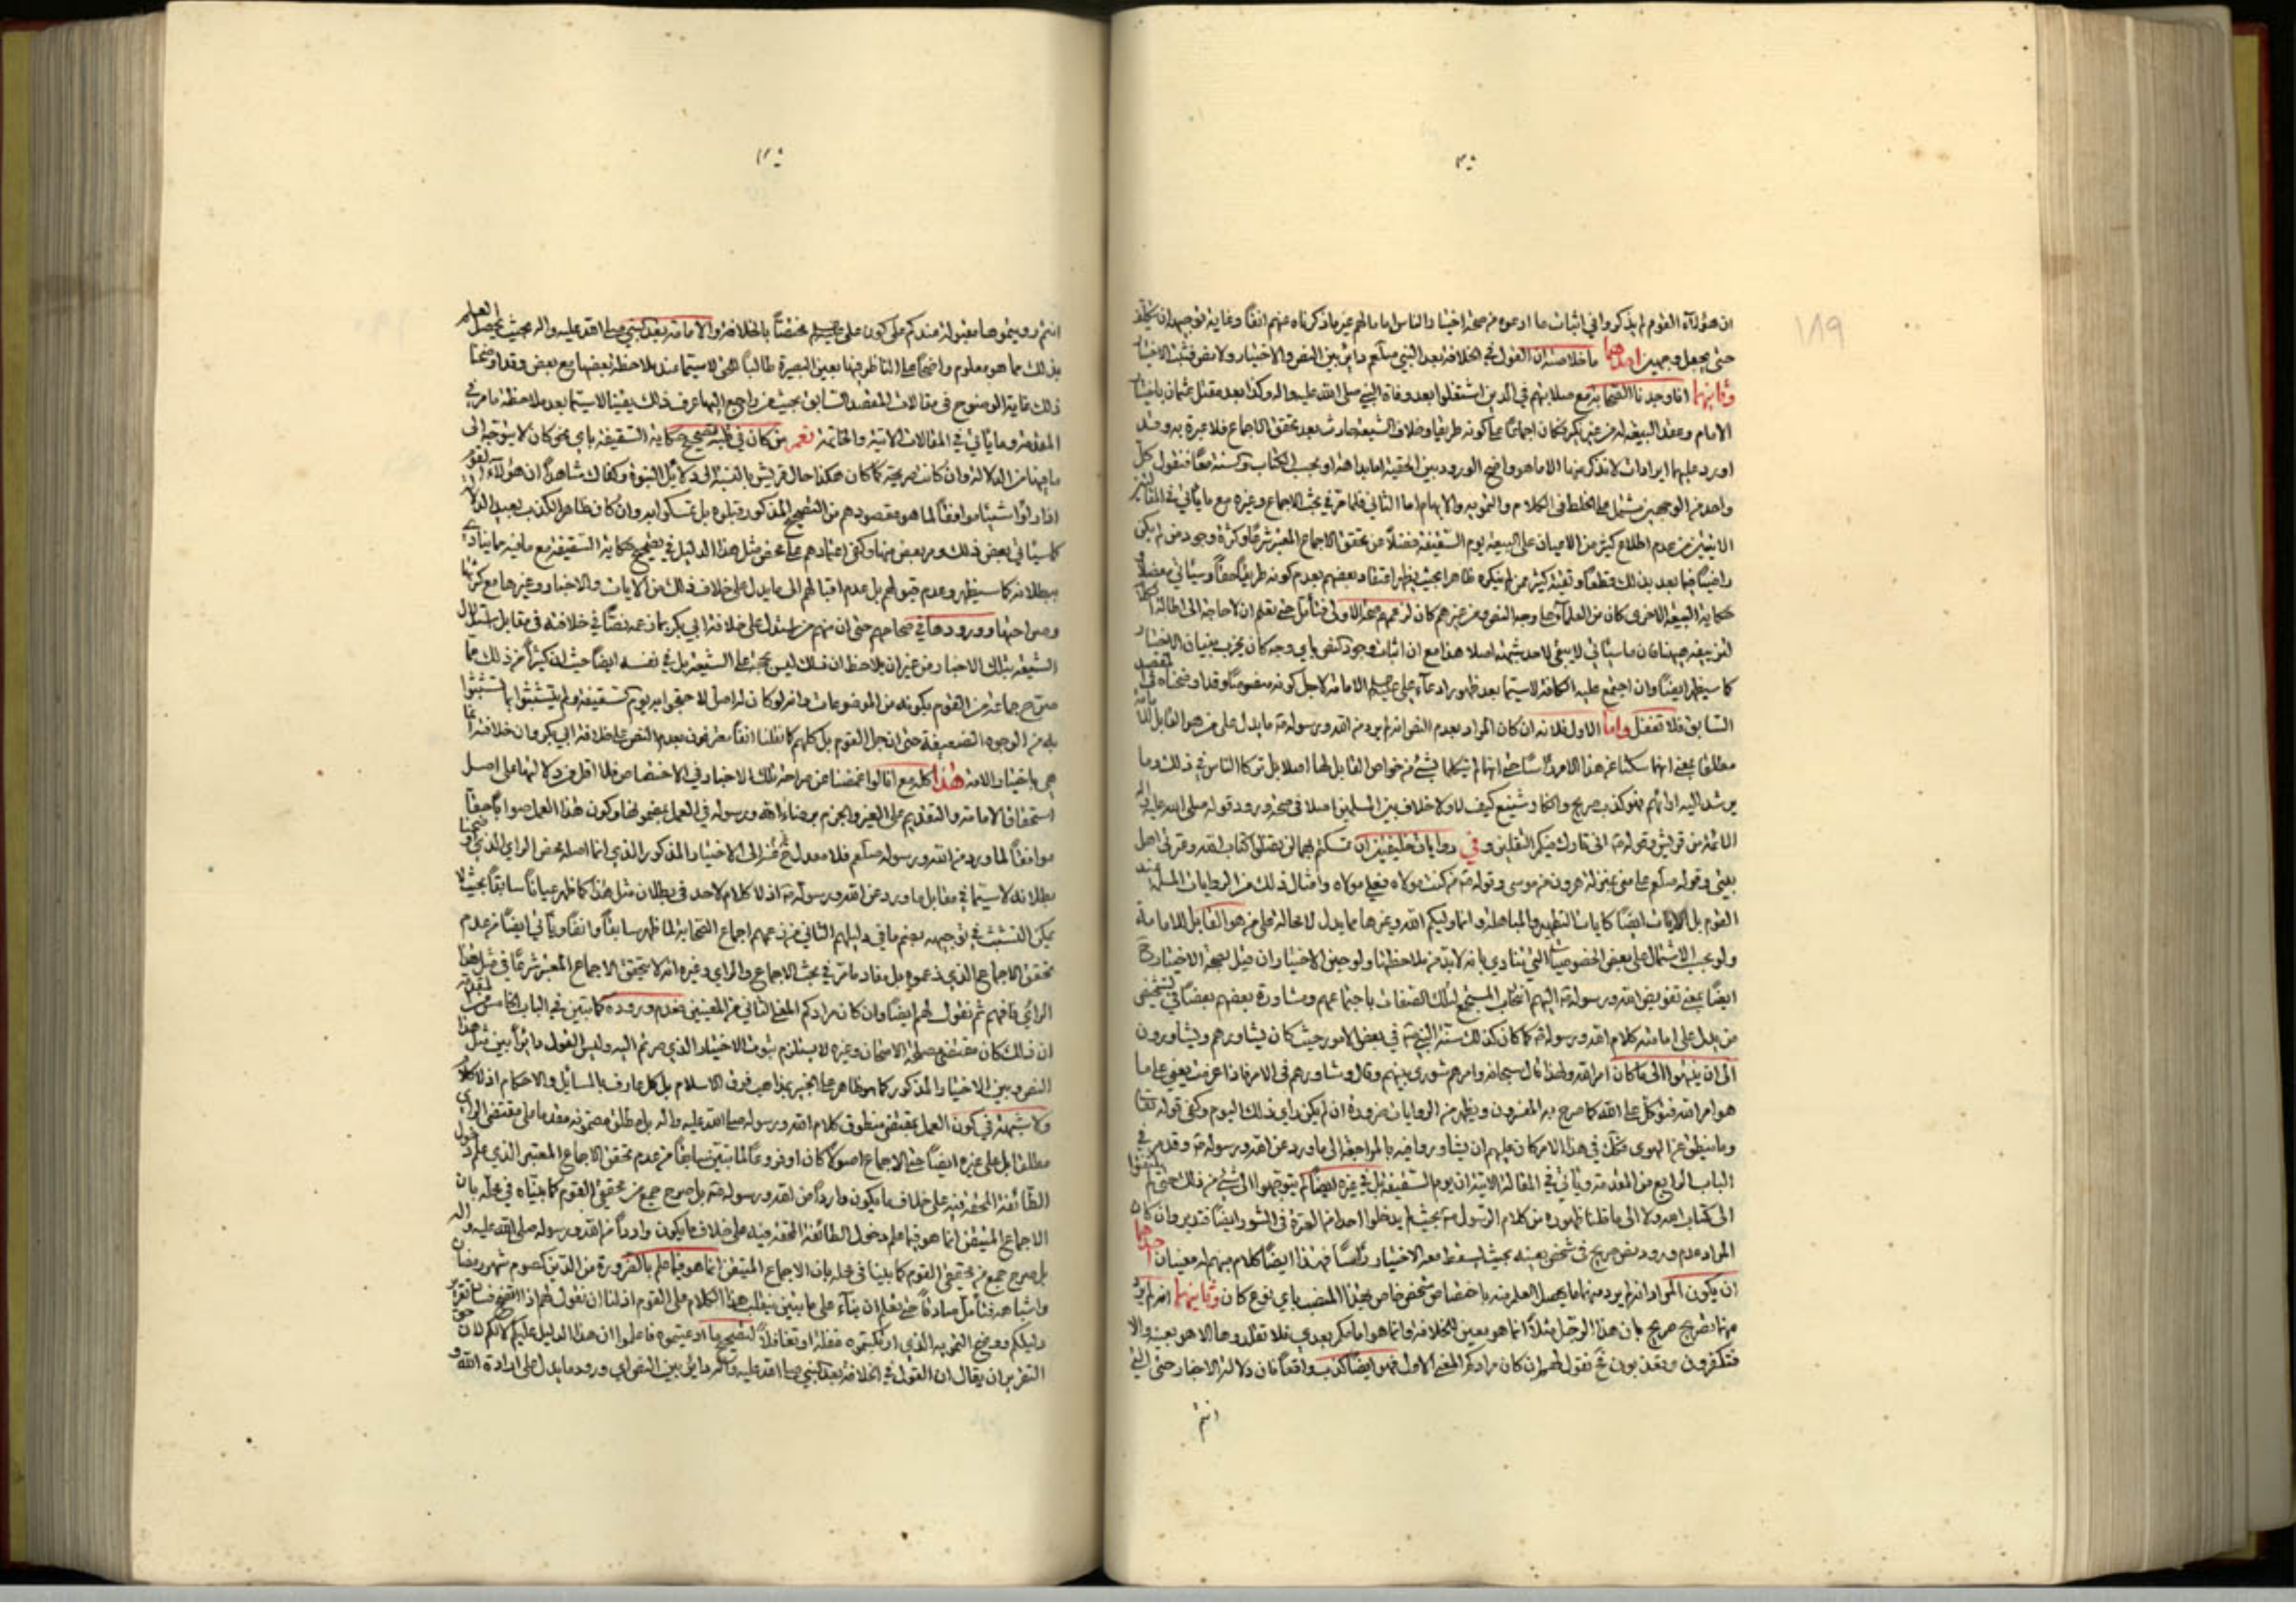 ان هؤلاء القوم لم يذكروا في اثبات ما ادعوه من صحة اختيار الناس اماما لهم غير ما ذكرناه عنهم انفا وغاية توجيه
حتى يجعل وجهين احدهما ما خلاصته ان القول في الخلافة بعد النبي صلعم دائر بين النص والاختيار ولا نص فثبت الاختيار
وثانيهما انا وجدنا الصحابة مع صلابتهم في الدين اشتغلوا بعد وفاة النبي صلى الله عليه واله وكذا بعد مقتل عثمان باختيار
الامام وعقد البيعة له من غير نكير فكان اجماعا على كونه طريقا وخلاف الشيعة حادث بعد تحقق الاجماع فلا عبرة به وقد
اورد عليهما ايرادات لا نذكر منها الا ما هو واضح الورود بين الحقية اما بداهة او بحسب الكتاب والسنة معا فنقول كل
واحد من الوجهين مشتمل على الخلط في الكلام والتمويه والابهام اما الثاني فلما مر في بحث الاجماع وغيره مع ما ياتي في
من عدم اطلاع كثير من الاعيان على البيعة يوم السقيفة فضلا عن تحقق الاجماع المعتبر شرعا وكثرة وجود من لم يكن
راضيا فيما بعد بذلك قطعا وتقية كثير ممن لم ينكره ظاهرا بحيث يظهر اعتقاد بعضهم بعدم كونه طريقا حقا وسياتي مفصلا
حكاية البيعة الاخرى كان من العلماء على وجه النص ومن غيرهم كان لزعمهم صحة الاولى فتامل حتى تعلم ان لا حاجة الى اطالة
لتزييفه فان ما سياتي لا يبقي لاحد شبهة اصلا هذا مع ان اثبات وجود النص باي وجه كان مخرب بنيان الاختيار
كما سيظهر ايضا وان اجتمع عليه الكافة لاسيما بعد ظهور ادعاء علي الامامة لاجل كونه منصوصا وقد اوضحناه في المقصد
السابق فلا تغفل واما الاول فلانه ان كان المراد بعدم النص انه لم يرد من الله ورسوله ما يدل على من هو القابل للامامة
مطلقا بمعنى انهما سكتا عن هذا الامر راسا حتى انهما لم يتكلما بشيء من خواص القابل لها اصلا بل تركا الناس في ذلك وما
يرشد اليه اراءهم فهو كذب صريح وانكار شنيع كيف لا ولا خلاف بين المسلمين اصلا في صحة ورود قوله صلى الله عليه واله
الائمة من قريش وقوله اني تارك فيكم الثقلين وفي روايات خليفتين ان تمسكتم بهما لن تضلوا كتاب الله وعترتي اهل
بيتي وقوله صلعم علي مني بمنزلة هرون من موسى وقوله من كنت مولاه فعلي مولاه وامثال ذلك من الروايات المسلمة عند
القوم بل الايات ايضا كايات التطهير والمباهلة وانما وليكم الله وغيرها مما يدل لا محالة على من هو القابل للامامة
ولو بحسب الاشتمال على بعض الخصوصيات التي تنادي بانه لابد من ملاحظتها ولو حين الاختيار وان قيل بصحة الاختيار
ايضا بمعنى تفويض الله ورسوله اليهم انتخاب المستجمع لتلك الصفات باجتماعهم ومشاورة بعضهم بعضا في تشخيص
من يدل على امامته كلام الله ورسوله كما كان كذلك سنة النبي في بعض الامور حيث كان يشاورهم ويشاورون
الى ان ينتهوا الى ما كان امر الله ولهذا قال سبحانه وامرهم شورى بينهم وقال وشاورهم في الامر فاذا عزمت يعني على ما
هو امر الله فتوكل على الله كما صرح به المفسرون ويظهر من الروايات ضرورة ان لم يكن راي ذلك اليوم وكفى قوله تعالى
وما ينطق عن الهوى فكذلك في هذا الامر كان عليهم ان يشاوروا فيه بالمراجعة الى ما ورد عن الله ورسوله وقد مر في
الباب الرابع من المقدمة وياتي في المقالة الاتية ان يوم السقيفة بل في غيره ايضا لم يتوجهوا الى شيء من ذلك حتى لم يلتفتوا
الى كتاب الله ولا الى ما قلنا ظهوره من كلام الرسول بحيث لم يدخلوا احدا من العترة في الشورى ايضا فتدبر وان كان
المراد عدم ورود نص صريح في شخص بعينه بحيث يسقط معه الاختيار راسا فهذا ايضا كلام مبهم له معنيان احدهما
ان يكون المراد انه لم يرد منهما ما يحصل العلم منه باختصاص شخص خاص بهذا المنصب باي نوع كان وثانيهما انه لم يرد
منهما تصريح صريح بان هذا الرجل مثلا انما هو بعين الخلافة وانما هو امامكم بعدي فلا تقلدوها الا هو بعينه والا
فتكفرون وتعذبون ثم نقول لهم ان كان مرادكم المعنى الاول فهو ايضا كذب واقعا فان دلالة الاخبار حتى التي
انتم
انتم رويتموها مقبولة عندكم على كون علي مختصا بالخلافة والامامة بعد النبي صلى الله عليه واله بحيث يحصل العلم
بذلك مما هو معلوم واضح على الناظر فيها بعين البصيرة طالبا للحق لاسيما عند ملاحظة بعضها مع بعض وقد اوضحنا
ذلك غاية الوضوح في مقالات المقصد السابق بحيث من راجع اليها عرف ذلك يقينا لاسيما بعد ملاحظة ما مر في
المقدمة وما ياتي في المقالات الاتية والخاتمة نعم من كان في قلبه تصحيح حكاية السقيفة باي نحو كان لا يتوجه الى
ما فيها من الدلالة وان كانت صريحة كما كان هكذا حال قريش بالنسبة الى دلائل النبوة وكفاك شاهدا ان هؤلاء القوم
اذا راوا شيئا موافقا لما هو مقصودهم من التصحيح المذكور قبلوه بل تمسكوا به وان كان ظاهر الكذب بعيد الدلالة
كما سياتي بعض ذلك ومر بعض منها وكفى اعتمادهم على محض مثل هذا الدليل في تصحيح حكاية السقيفة مع ما فيه مما ينادي
ببطلانه كما سيظهر وعدم قبولهم بل عدم اقبالهم الى ما يدل على خلاف ذلك من الايات والاخبار وغيرها مع كثرتها
وصراحتها وورودها في صحاحهم حتى ان منهم من استدل على خلافة ابي بكر بما زعمه نصا في خلافته في مقابل استدلال
الشيعة بتلك الاخبار من غير ان يلاحظ ان ذلك ليس بحجة على الشيعة بل في نفسه ايضا حيث ان كثيرا من ذلك مما
صرح جماعة من القوم بكونه من الموضوعات وانه لو كان له اصل لاحتجوا به يوم السقيفة ولم يتشبثوا بما تشبثوا
به من الوجوه الضعيفة حتى ان جل القوم بل كلهم كما نقلنا انفا معترفون بعدم النص على خلافة ابي بكر وان خلافته انما
هي باختيار الامة هذا كله مع انا لو اغمضنا عن صراحة تلك الاخبار في الاختصاص فلا اقل من دلالتها على اصل
استحقاق الامامة والتقديم على الغير والجزم برضاء الله ورسوله في العمل بمضمونها وكون هذا العمل صوابا حقا
موافقا لما ورد من الله ورسوله صلعم فلا معدل الى الاختيار المذكور الذي انما اصله محض الراي الذي
بطلانه لاسيما في مقابل ما ورد عن الله ورسوله اذ لا كلام لاحد في بطلان مثل هذا كما ظهر عيانا سابقا بحيث لا
يمكن التشبث في توجيهه بضم ما في دليلهم الثاني من زعمهم اجماع الصحابة لما ظهر سابقا وانفا وياتي ايضا من عدم
تحقق الاجماع الذي زعموه بل مفاد ما مر في بحث الاجماع والراي وغيره انه لا يتحقق الاجماع المعتبر شرعا في مثل هذا
الراي فافهم ثم نقول لهم ايضا وان كان مرادكم المعنى الثاني من المعنيين فعدم وروده كما تبين في الباب الخامس من
ان ذلك كان مقتضى مصلحة الامتحان وغيره لا يستلزم ثبوت الاختيار الذي صرتم اليه وليس القول دائرا بين مثل هذا
النص وبين الاختيار المذكور كما هو ظاهر على الخبير بمذاهب فرق الاسلام بل كل عارف بالمسائل والاحكام اذ لا كلام
ولا شبهة في كون العمل بمقتضى منطوق كلام الله ورسوله صلى الله عليه واله بل مطلق مضمونه مقدما على مقتضى الراي
مطلقا بل على غيره ايضا حتى الاجماع اصولا كان او فروعا لما تبين سابقا من عدم تحقق الاجماع المعتبر الذي علم دخول
الطائفة المحقة فيه على خلاف ما يكون واردا من الله ورسوله بل صرح جمع من محققي القوم كما بيناه في محله بان
الاجماع المتيقن انما هو فيما علم دخول الطائفة المحقة فيه على خلاف ما يكون واردا من الله ورسوله صلى الله عليه واله
بل صرح جمع من محققي القوم كما بينا في محله بان الاجماع المتيقن انما هو فيما علم بالضرورة من الدين كصوم شهر رمضان
واشباهه فتامل صادقا حتى تعلم ان بناء على ما تبين ينقلب هذا الكلام على القوم اذ لنا ان نقول لهم اذا اتضح فساد تقرير
دليلكم ووضح التمويه الذي ارتكبتموه غفلة او تغافلا لتصحيح ما ادعيتموه فاعلموا ان هذا الدليل عليكم لا لكم لان حق
التقرير ان يقال ان القول في الخلافة بعد النبي صلى الله عليه واله دائر بين النص اي ورود ما يدل على ارادة الله و